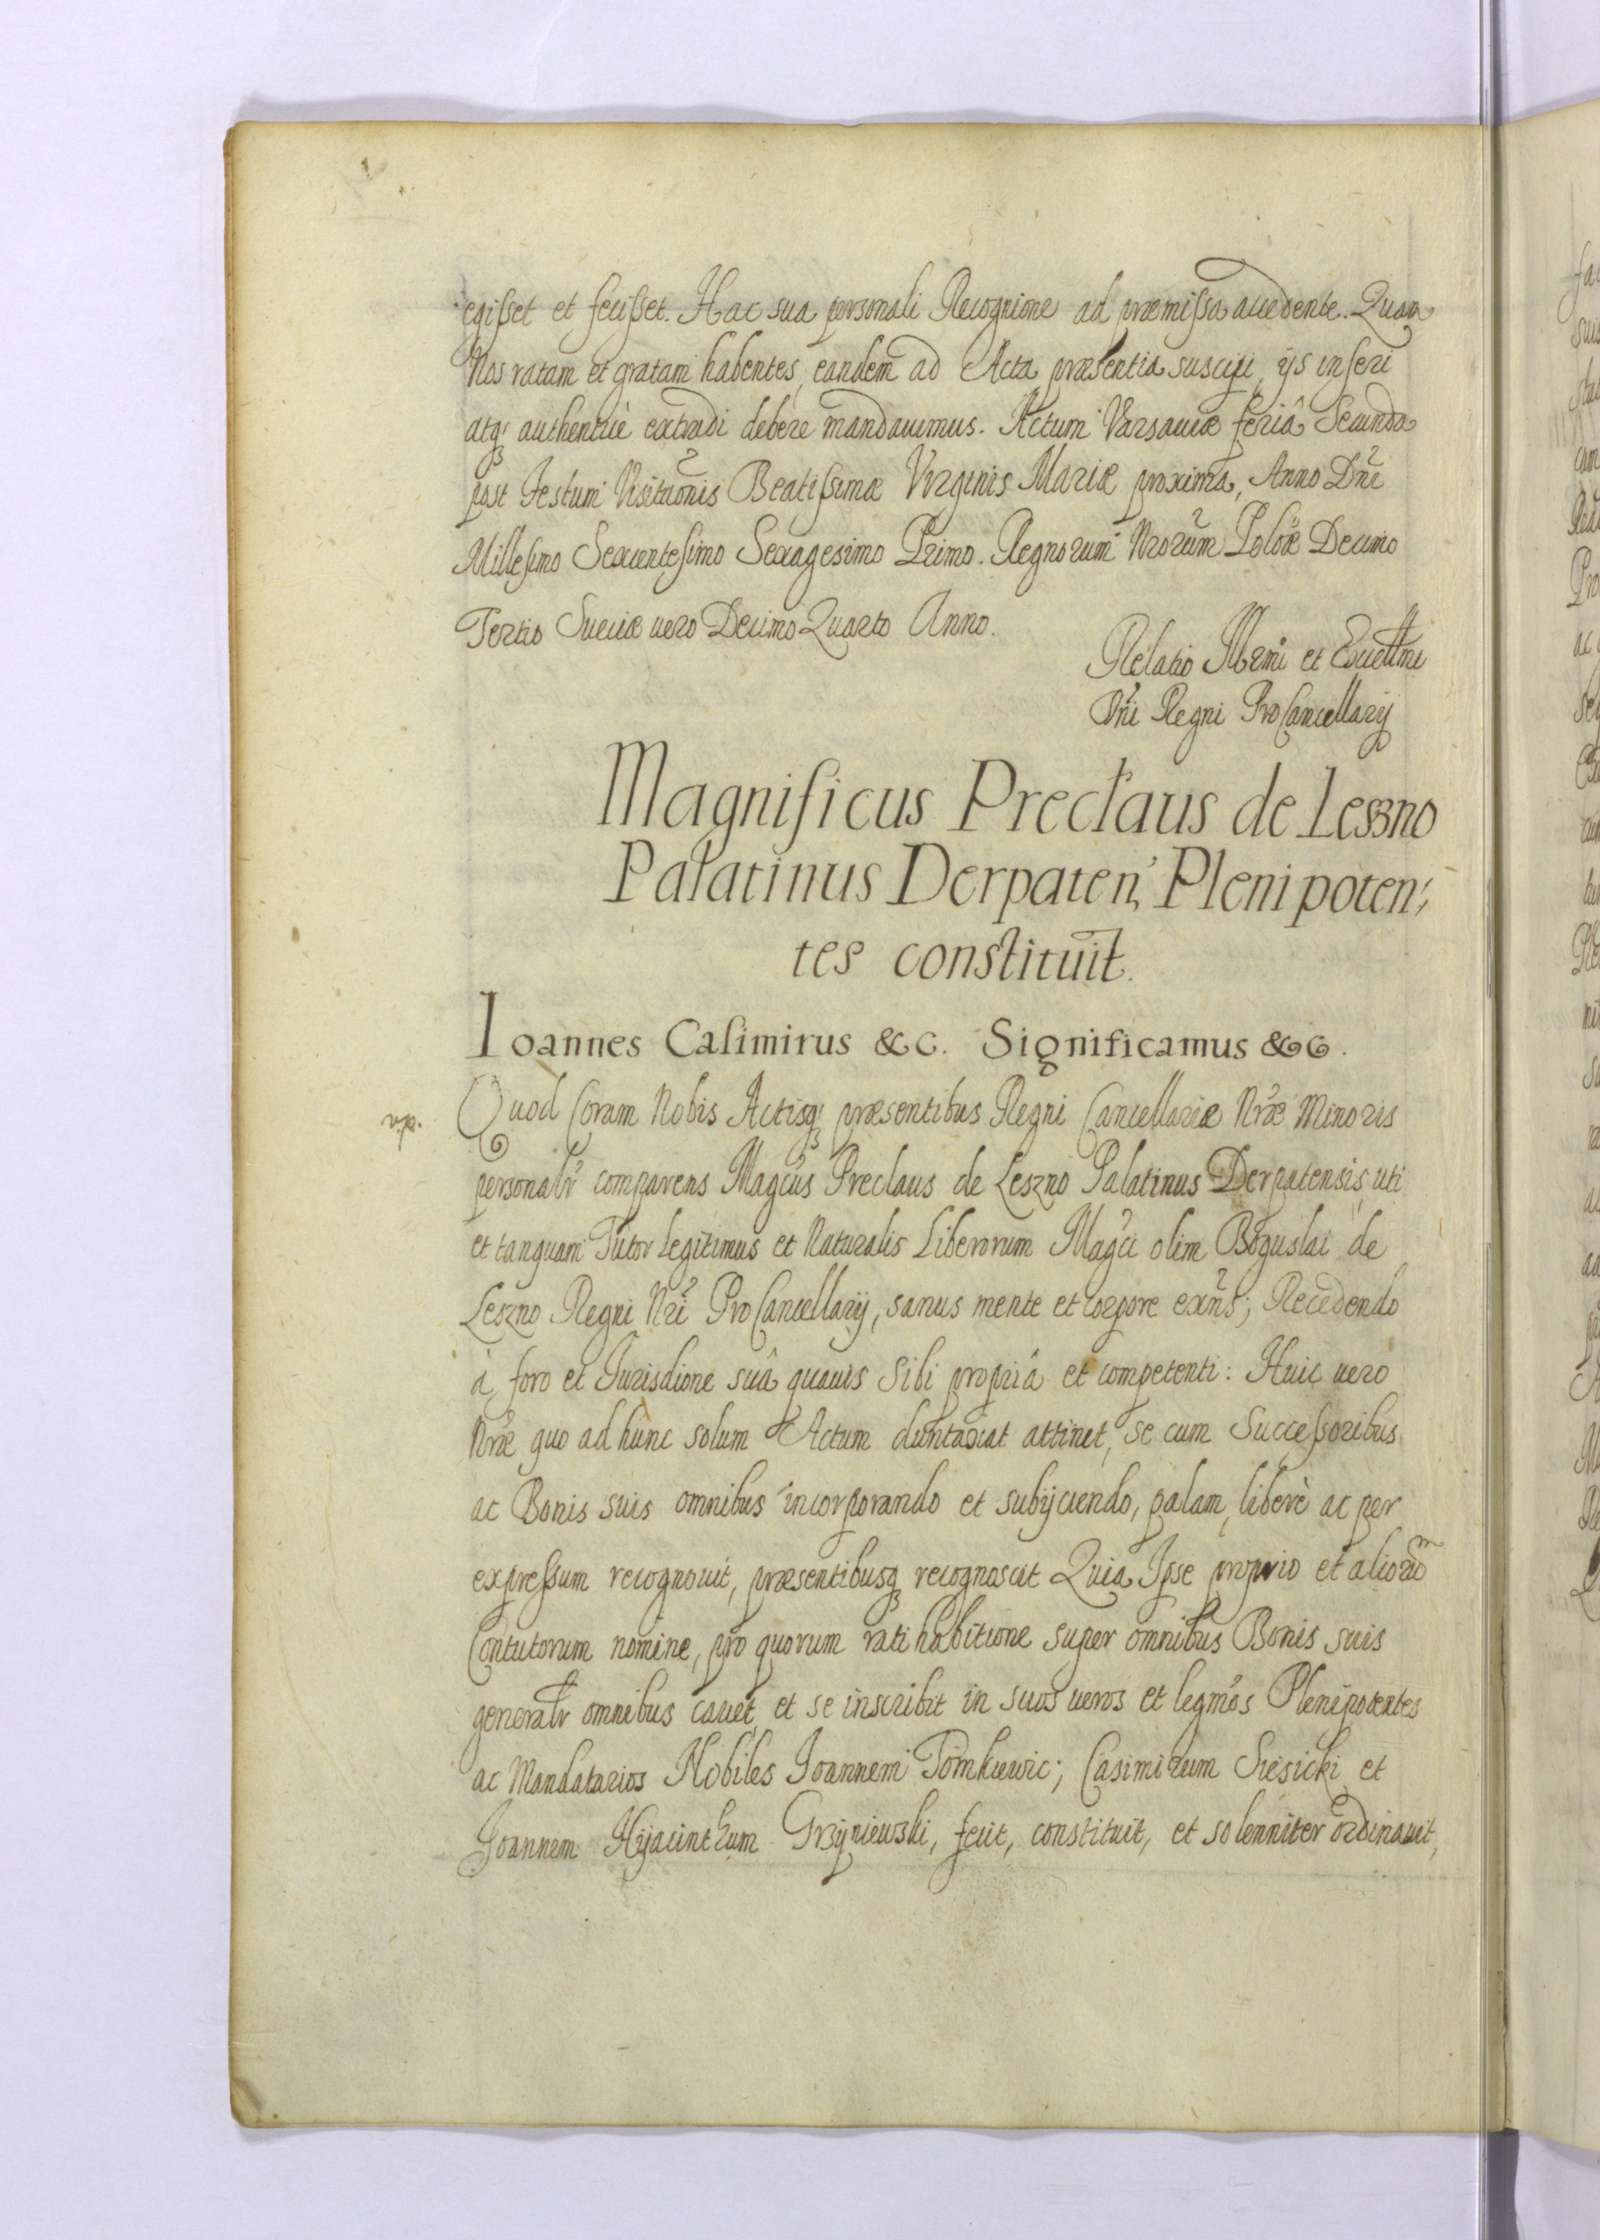 egisset et fecisset. Hac sua personali Recognione ad præmissa accedente. Quam
Nos ratam et gratam habentes, eandem ad Acta præsentia suscipi, ijs inseri
atq; authenticè extradi debere mandavimus. Actum Varsaviæ feriâ Secunda
post Festum Visitaonis Beatissimæ Virginis Mariæ proxima, Anno Dni
Millesimo Sexcentesimo Sexagesimo Primo. Regnorum Nrorum Polõæ Decimo
Tertio Sueciæ vero Decimo Quarto Anno.
Relatio Illrmi et Excellmi
Dni Regni ProCancellarij
Magnificus Preclaus de Leszno
Palatinus Derpaten, Plenipoten,
tes constituit.
Ioannes Casimirus &c. Significamus &c.
Quod Coram Nobis Actisq; præsentibus Regni Cancellariæ Nræ Minoris
personalr comparens Magcus Preclaus de Leszno Palatinus Derpatensis, uti
et tanquam Tutor legitimus et Naturalis Liberorum Magci olim Boguslai de
Leszno Regni Nri ProCancellarij, sanus mente et corpore exns; Recedendo
à foro et Jurisdione suâ quavis Sibi propriâ et competenti: Huic vero
Nræ quo ad hunc solum Actum duntaxat attinet, se cum Successoribus
ac Bonis suis omnibus incorporando et subijciendo, palam, liberè ac per
expressum recognovit, præsentibusq recognoscit Quia Ipse proprio et aliorum
Contutorum nomine, pro quorum rati habitione super omnibus Bonis suis
generalr omnibus cavet, et se inscribit in suos veros et legmos Plenipotentes
ac Mandatarios Nobiles Joannem Tomkiewic; Casimirum Siesicki et
Joannem Hyacinthum Grzyniewski, fecit, constituit, et solenniter ordinavit,